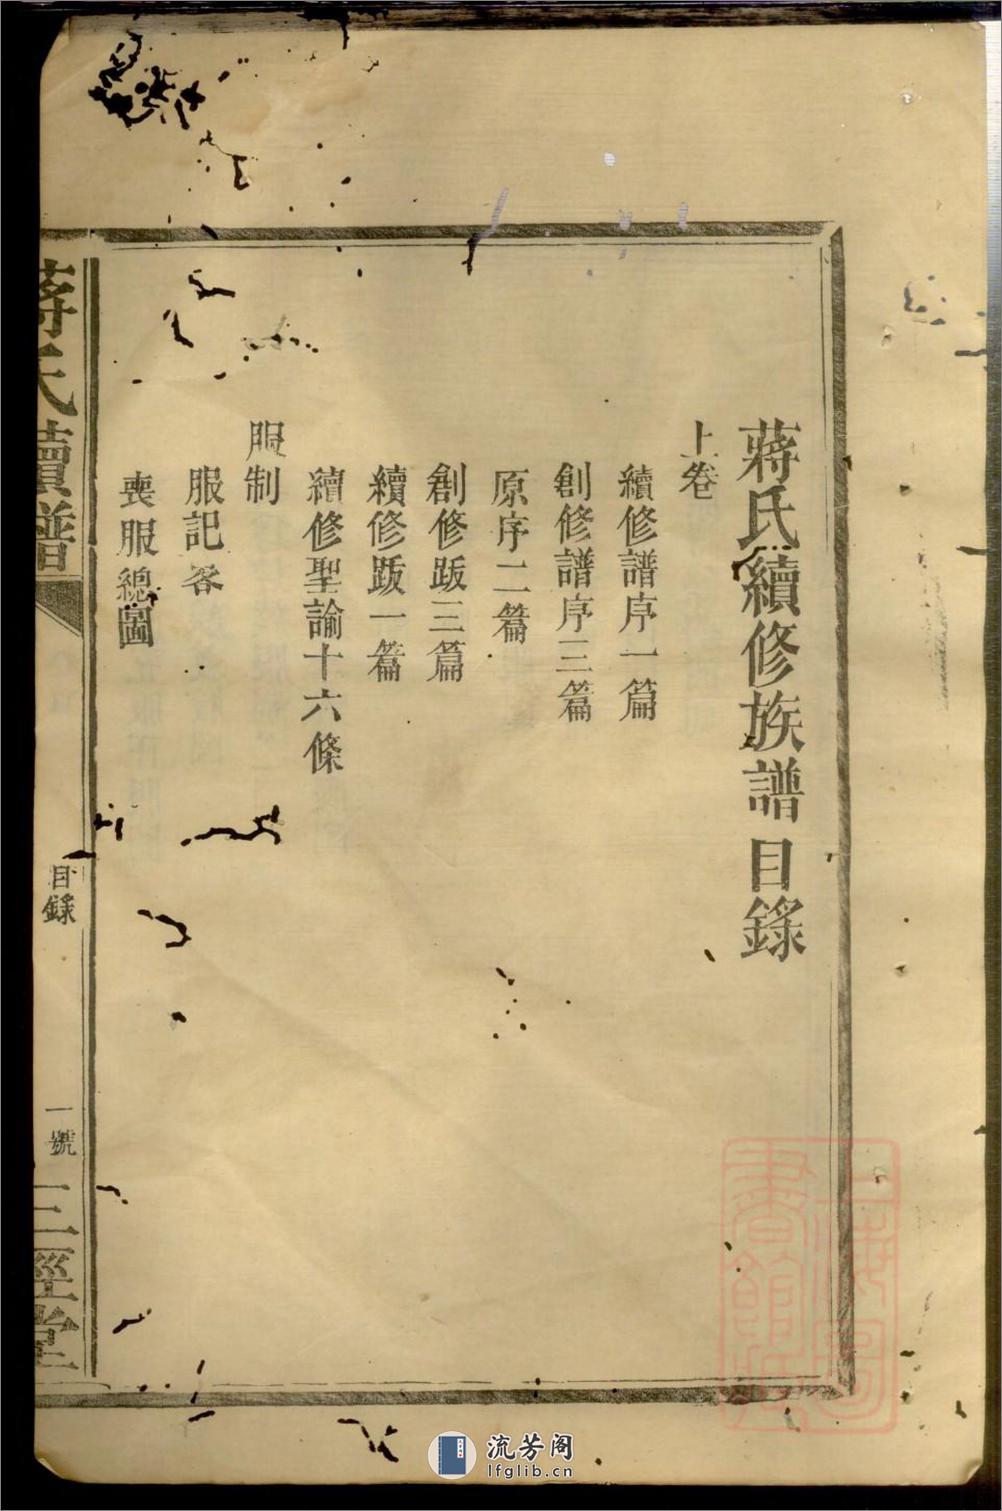 蔣氏續修族譜目錄
上卷
續修譜序一篇
創修譜序三篇
原序二篇
創修跋三篇
續修跋一篇
續修聖諭十六條
服制
服記畧
喪服總圖
蔣氏續譜
目錄
一號
三徑堂
上海圖書館藏
流芳阁
lfglib.cn